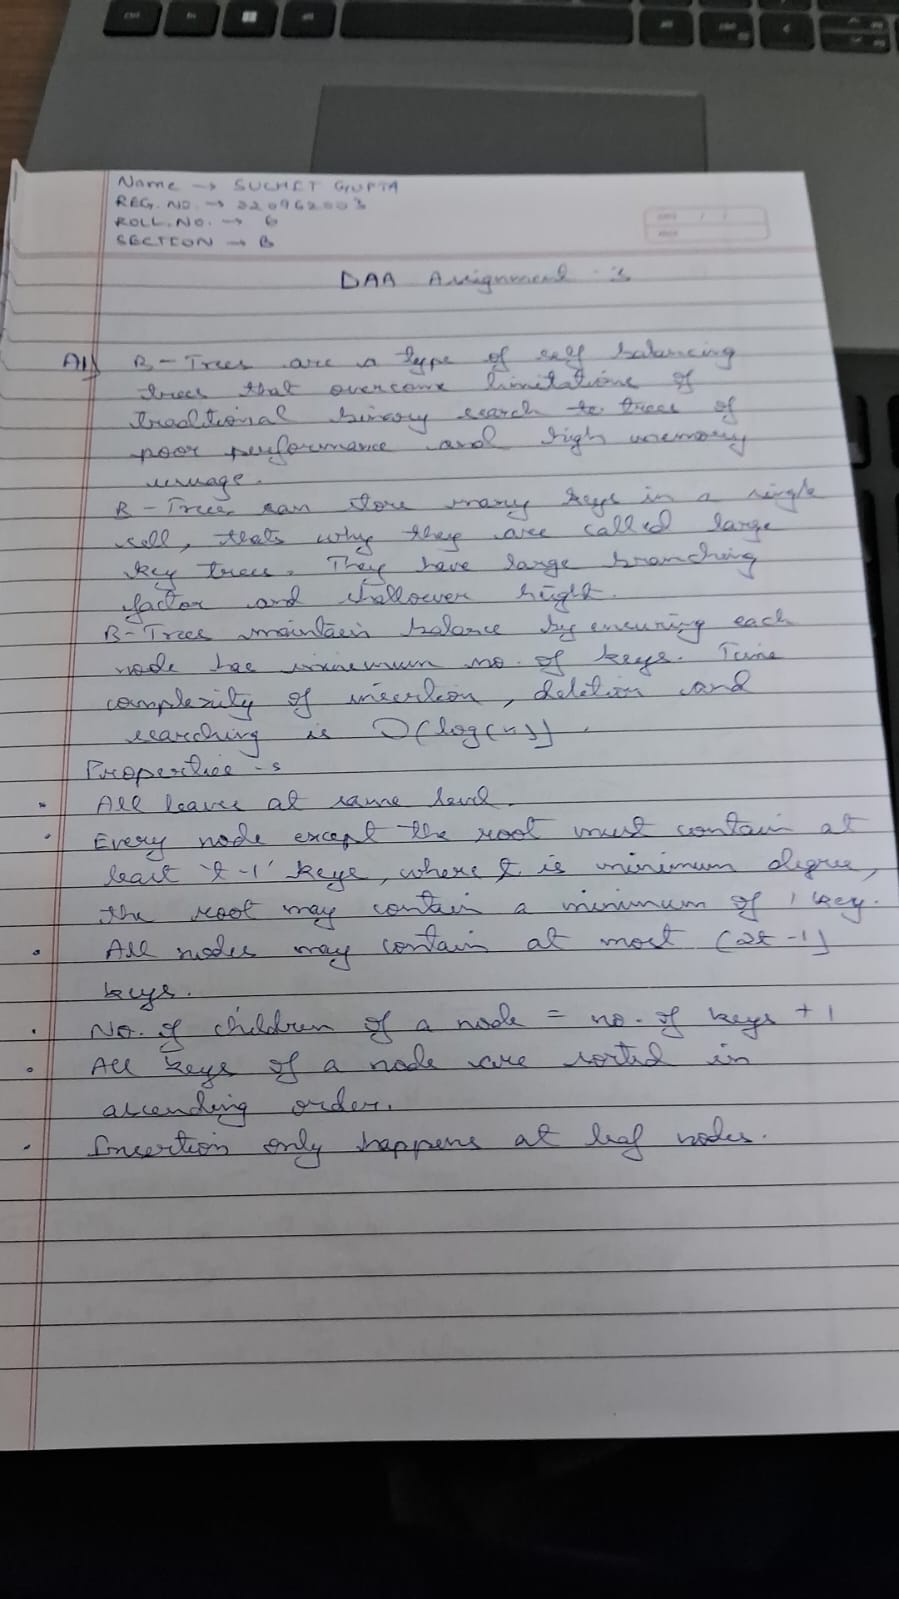 Name → SUCHET GUPTA
REG. NO. → 220962003
ROLL. NO. → 6
SECTION → B
DAA Assignment :-
A1) B-Trees are a type of self balancing
trees that overcome limitations of
traditional binary search trees of
poor performance and high memory
usage.
B-Trees can store many keys in a single
cell, thats why they are called large
key trees. They have large branching
factor and shallower height.
B-Trees maintain balance by ensuring each
node has minimum no. of keys. Time
complexity of insertion, deletion and
searching is O(log(n)).
Properties :-
• All leaves at same level.
• Every node except the root must contain at
least 't-1' keys, where t is minimum degree,
the root may contain a minimum of 1 key.
• All nodes may contain at most (2t-1)
keys.
• No. of children of a node = no. of keys + 1
• All keys of a node are sorted in
ascending order.
• Insertion only happens at leaf nodes.